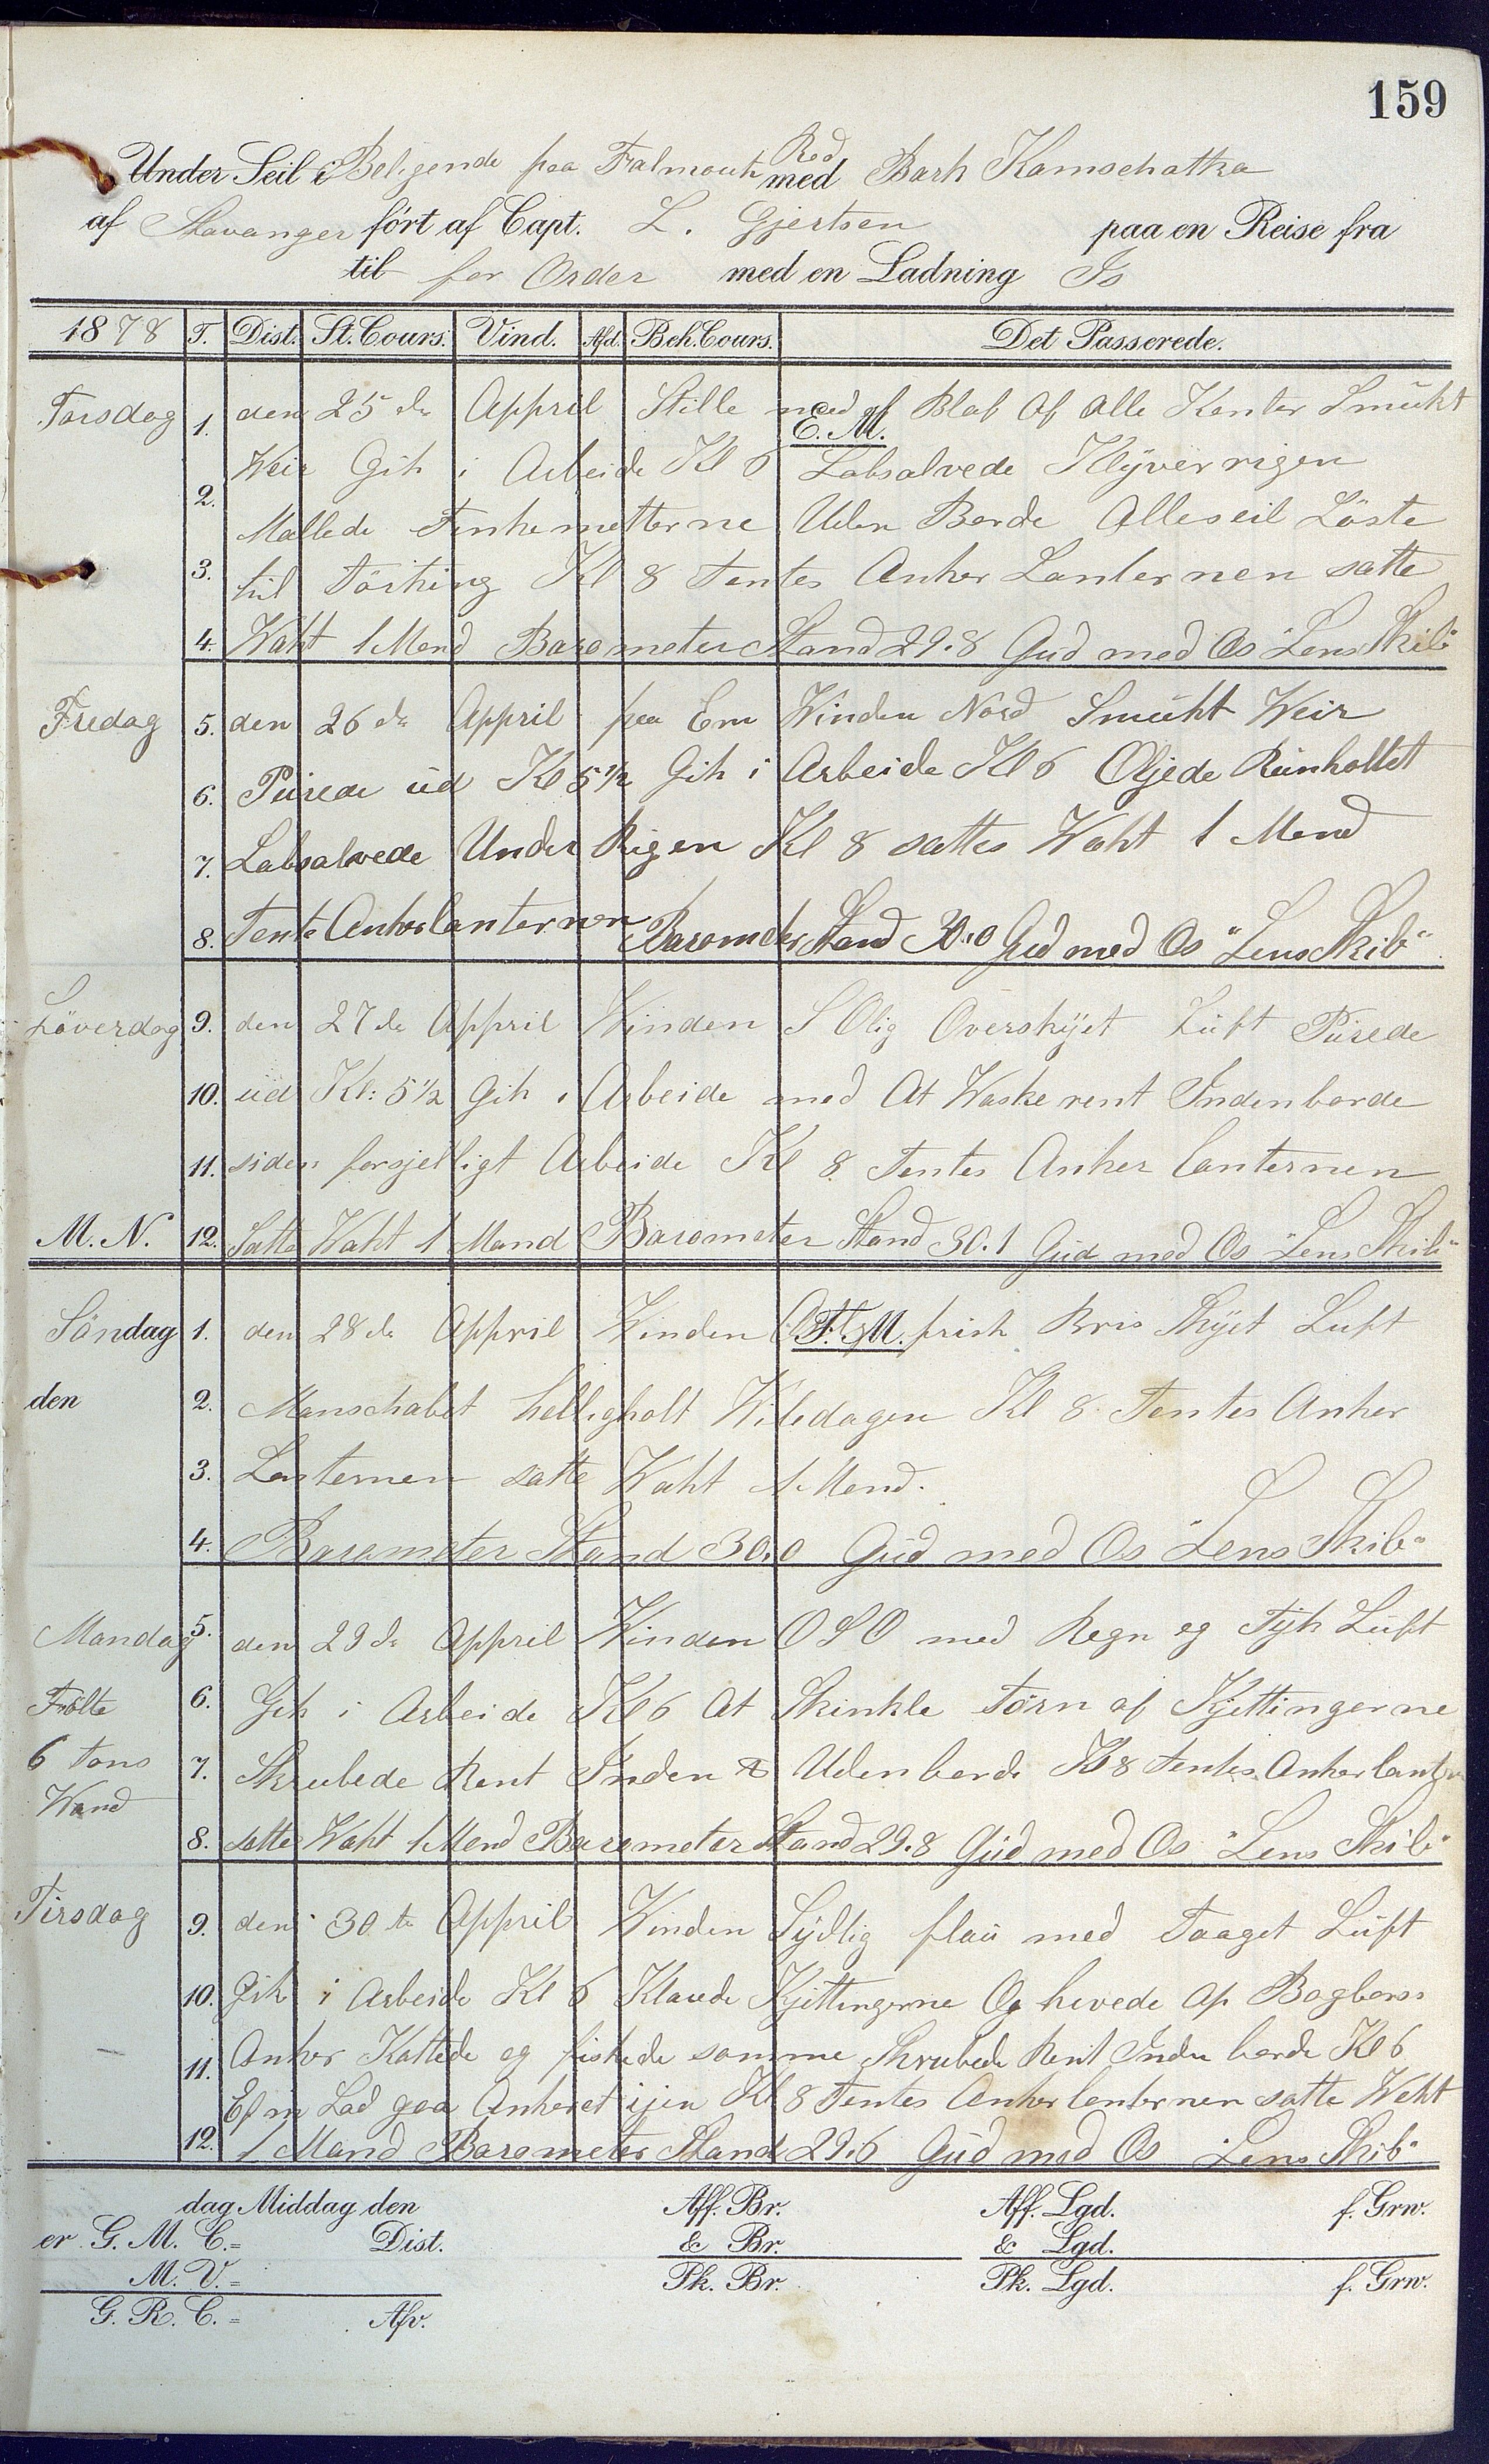 159
Under Seil i Beligende paa Falmouth Red med Bark Kamschatka
af Stavanger ført af Capt. L. Gjertsen paa en Reise fra
til for Order med en Ladning Is
1878 T. Dist. St. Cours. Vind. Afd. Beh. Cours. Det Passerede.
Torsdag 1. den 25 de Appril Stille med af Blaf Af Alle Kanter Smükt
E. M.
2. Weir Gik i Arbeide Kl 6 Labsalvede Klÿverrigen
Mallede Finkenetterne Uden Borde Alleseil Löste
3. til Törking Kl 8 Tentes Anker Lanternen satte
4. Waht 1 Mand Barometer Stand 29.8 Gud med Os "Lens Skib"
Fredag 5. den 26 de Appril paa Em Winden Nord Smükt Weir
6. Purede üd Kl 5 1/2 Gik i Arbeide Kl 6 Oljede Rünholtet
7. Labsalvede Under Rigen Kl 8 sattes Waht 1 Mand
8. Tente Ankerlanternen Barometer Stand 30.0 Gud med Os "Lens Skib"
Löverdag 9. den 27 de Appril Winden S Olig Overskÿet Lüft Pürede
10. üd Kl: 5 1/2 Gik i Arbeide med At Waske rent Indenborde
11. siden forsjelligt Arbeide Kl 8 Tentes Anker lanternen
M. N. 12. Satte Waht 1 Mand Barometer Stand 30.1 Güd med Os "Lens Skib"
Söndag 1. den 28 de Appril Winden F. M. frisk Bris Skÿet Luft
den 2. Manschabet helligholt Wiledagen Kl 8 Tentes Anker
3. Lanternen satte Waht 1 Mand.
4. Barometer Stand 30.0 Güd med Os "Lens Skib"
Mandag 5. den 29 de Appril Winden O S O med Regn og Tÿk Lüft
Fölte 6. Gik i Arbeide Kl 6 At Skinkle Törn af Kjettingerne
6 Tons 7. Skrubede Rent Inden & Uden borde Kl 8 Tentes Ankerlantern
Wand
8. satte Waht 1 Mand Barometer Stand 29.8 Güd med Os "Lens Skib"
Tirsdag 9. den 30 te Appril Winden Sÿdlig flaü med Taaget Lüft
10. Gik i Arbeide Kl 6 Klarede Kjettingerne Og hevede Op Bagbors
11. Anker Kattede og fiskede samme Skrubede Rent Inden borde Kl 6
Efm Lod gaa Ankeret ijen Kl 8 Tentes Anker lanternen satte Waht
12. 1 Mand Barometer Stand 29.6 Güd med Os "Lens Skib"
dag Middag den Aff. Br. Aff. Lgd. f. Grw.
er G. M. C.= Dist. & Br. & Lgd.
M. V.= Pk. Br. Pk. Lgd. f. Grw.
G. R. C.= Afv.